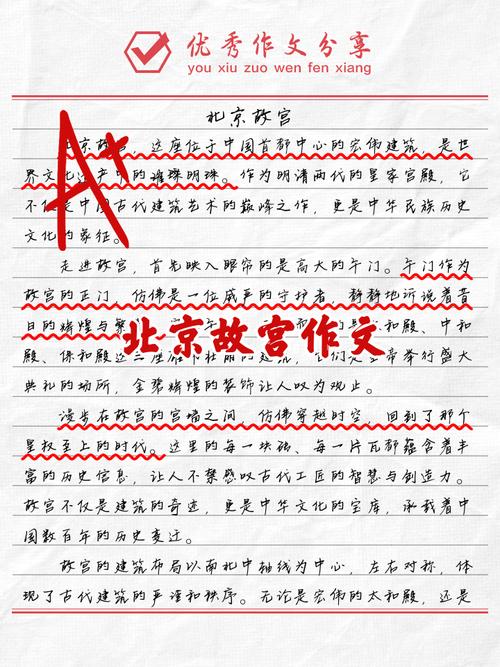 优秀作文分享
you xiu zuo wen fen xiang
北京故宫
北京故宫，这座位于中国首都中心的宏伟建筑，是世
界文化遗产中的璀璨明珠。作为明清两代的皇家宫殿，它
不仅是中国古代建筑艺术的巅峰之作，更是中华民族历史
文化的象征。
A+
走进故宫，首先映入眼帘的是高大的午门。午门作为
故宫的正门，仿佛是一位威严的守护者，静静地诉说着昔
日的辉煌与繁
和殿、中和
北京故宫作文
殿、保和殿这三座
皇帝举行盛大
典礼的场所，金碧辉煌的装饰让人叹为观止。
漫步在故宫的宫墙之间，仿佛穿越时空，回到了那个
皇权至上的时代。这里的每一块砖、每一片瓦都蕴含着丰
富的历史信息，让人不禁感叹古代工匠的智慧与创造力。
故宫不仅是建筑的奇迹，更是中华文化的宝库，承载着中
国数百年的历史变迁。
故宫的建筑布局以南北中轴线为中心，左右对称，体
现了古代建筑的严谨和秩序。无论是宏伟的太和殿，还是